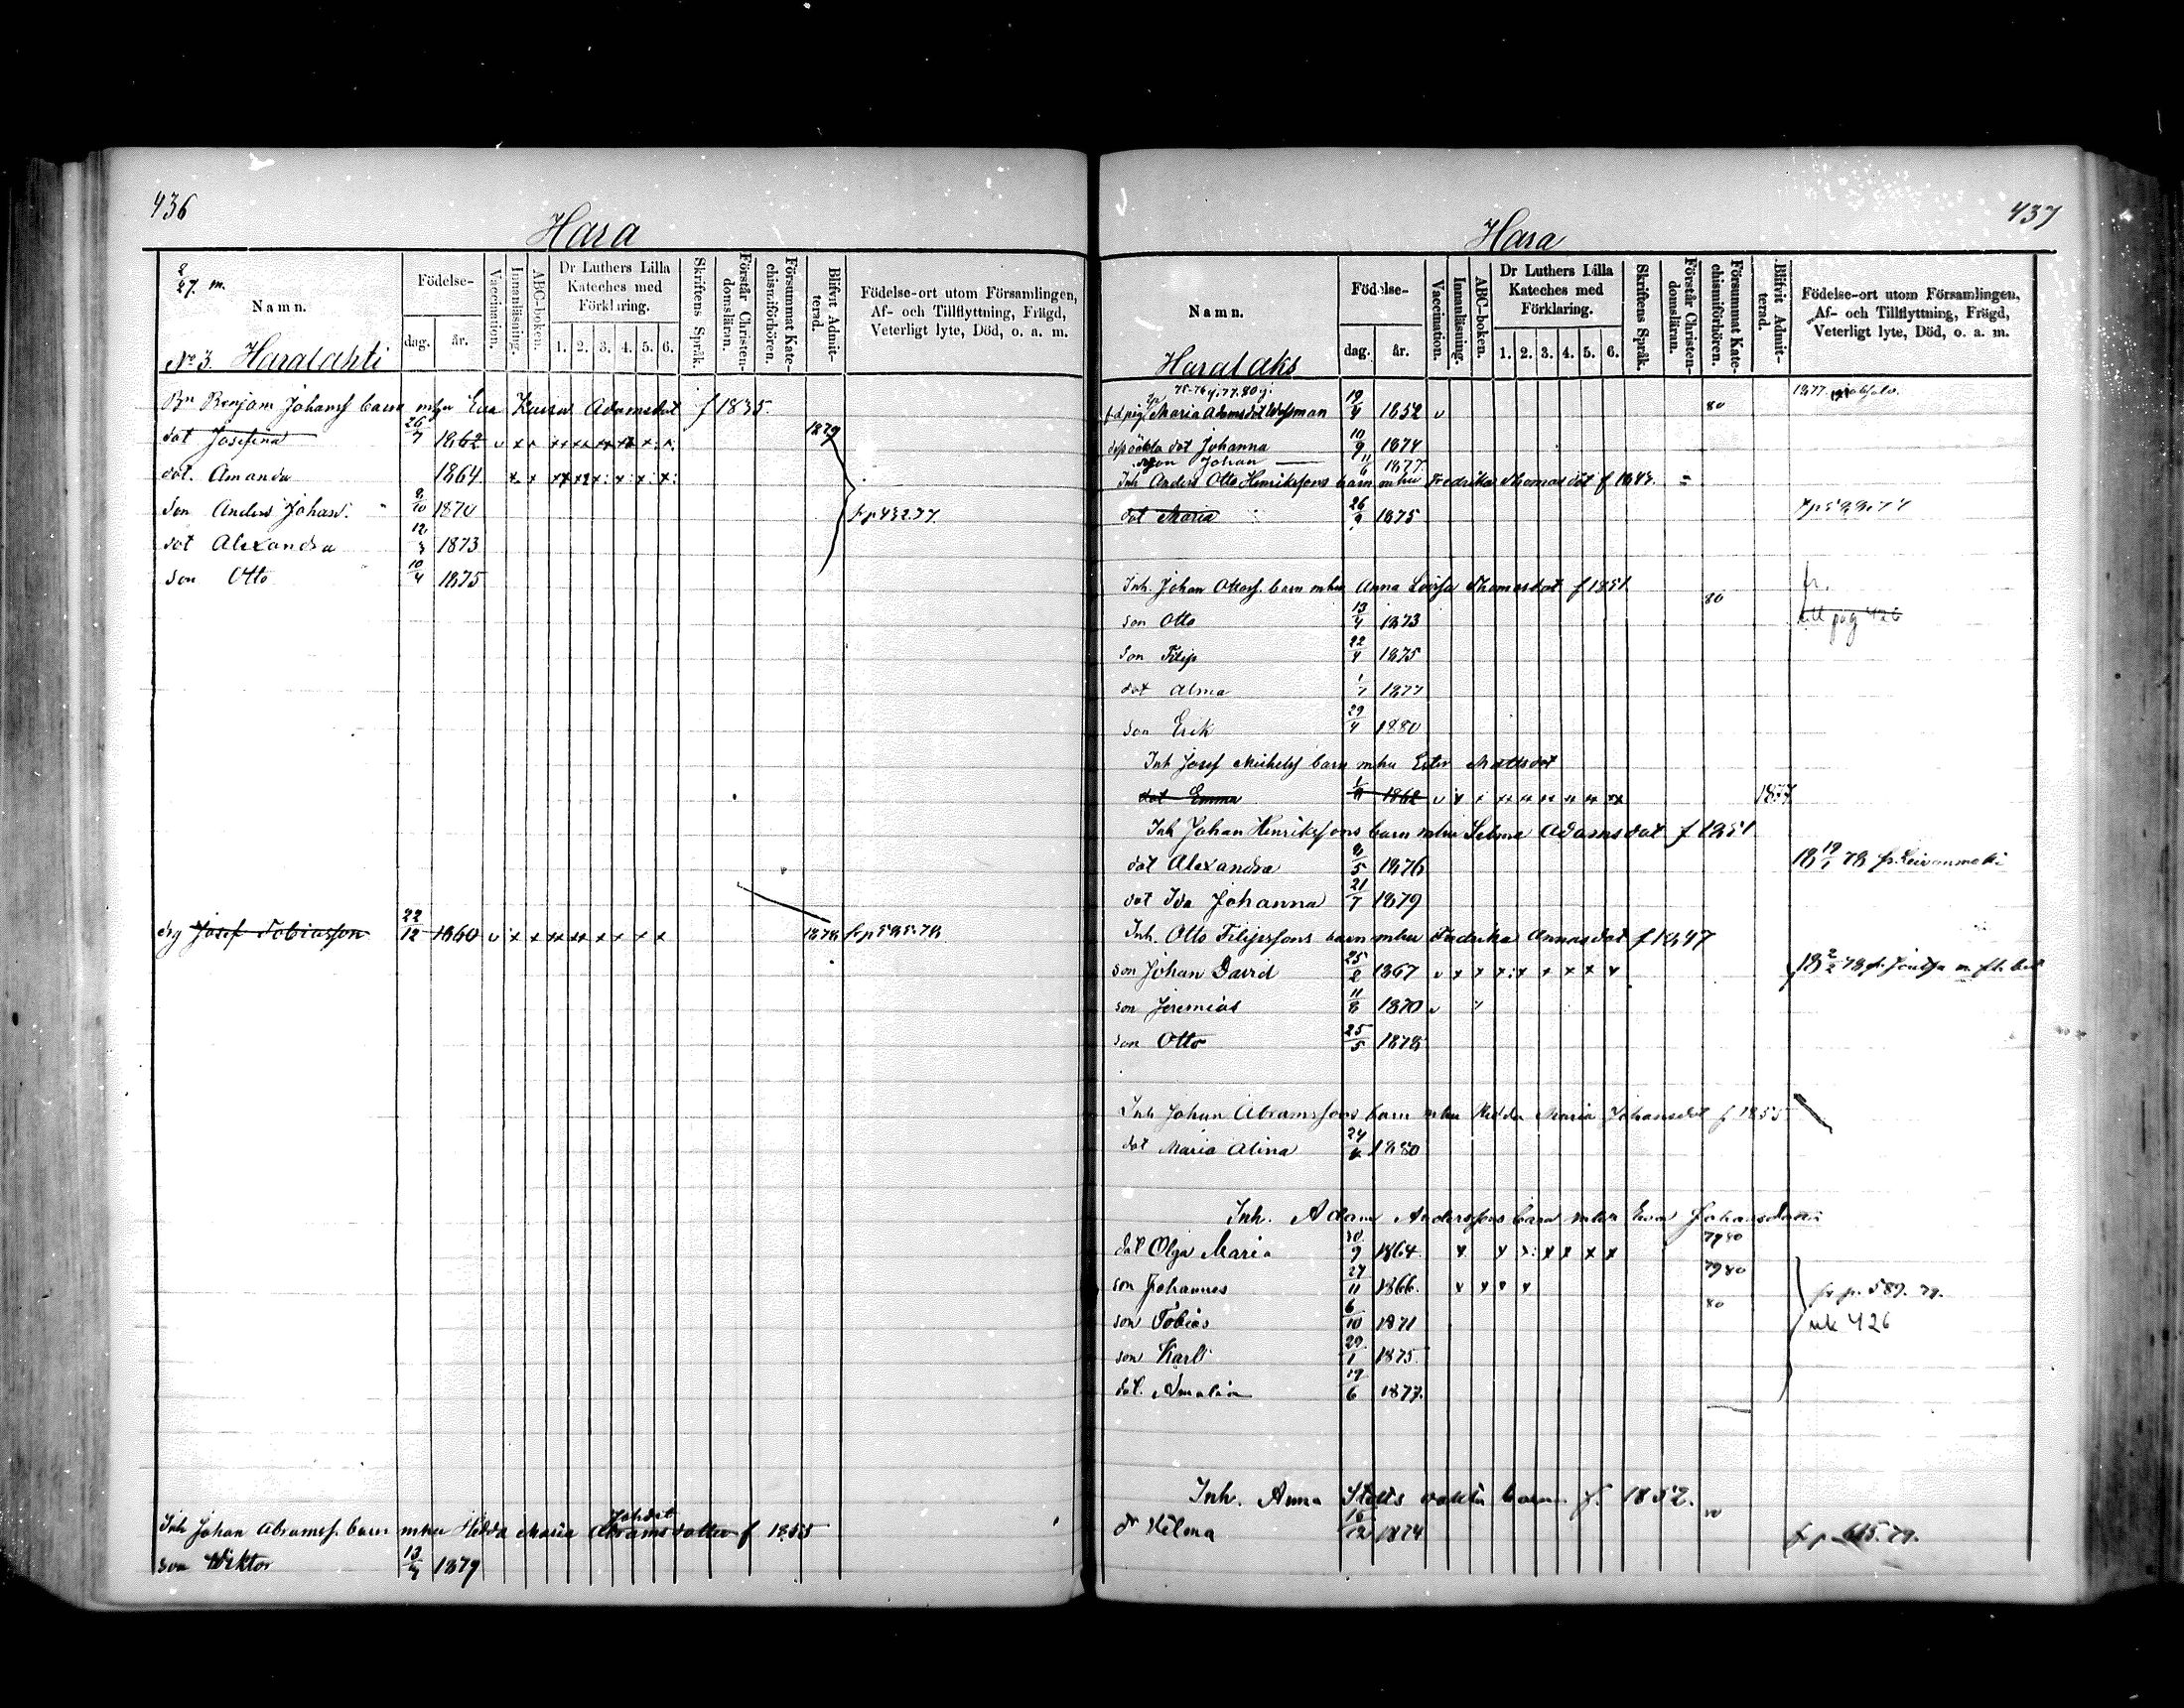 436
Hara
2/27. m.
Namn.
Födelse-
dag.
år.
Vaccination.
Innanläsning.
ABC-boken.
Dr Luthers Lilla Kateches med Förklaring.
1. 2. 3. 4. 5. 6.
Skriftens Språk.
Förstår Christen-domsläran.
Försummat Kate-chismiförhören.
Blifvit Admit-terad.
Födelse-ort utom Församlingen, Af- och Tillflyttning, Frägd, Veterligt lyte, Död, o. a. m.
No 3. Haralahti
Bn Benjam Johanss barn mhu Eva Adamsdot f 1835.
dot Josefina 26/7 1862 v x x xx xx xx xx x x 1879
dot. Amanda 1864 x x
son Anders Johan 9/10 1870 fr p 432.77
dot Alexandra 12/3 1873
son Otto 10/4 1875
drg Josef Tobiasson 22/12 1860 v x x xx xx x x x x 1878
Inh Johan Abramss. barn mhu Hedda Maria Abramsdotter Johdot f 1855
son Wiktor 13/4 1879
437
Hara
Namn.
Födelse-
dag.
år.
Vaccination.
Innanläsning.
ABC-boken.
Dr Luthers Lilla Kateches med Förklaring.
1. 2. 3. 4. 5. 6.
Skriftens Språk.
Förstår Christen-domsläran.
Försummat Kate-chismiförhören.
Blifvit Admit-terad.
Födelse-ort utom Församlingen, Af- och Tillflyttning, Frägd, Veterligt lyte, Död, o. a. m.
Haralaks
Maria 19/4 1852 v 80 1877
dot Johanna 10/9 1874
son Johan 11/6 1877
Inh Anders Otto Henrikssons barn mhu Fredrika Thomasdot
dot Maria 26/9 1875
Inh. Johan Ottoss. barn mhu Anna Lovisa Thomasdot f 1851
80 fr.
son Otto 13/4 1873 till pag 426
son Filip 22/4 1875
dot Alma 1/7 1877
son Erik 29/4 1880
Inh Josef Michelss barn mhu Ester Mattsdot
dot Emma 1/11 1862 v x x xx xx xx xx xx xx 1877
Inh Johan Henrikssons barn mhu Selma Adamsdot f 1851
dot Alexandra 8/5 1876 18 19/1 78 fr. Leivonmäki
dot Ida Johanna 21/7 1879
Inh. Otto Filipssons barn mhu Fredrika Annasdot f 1847
son Johan David 25/2 1867 v x x x:x x x x x 18 2/2 78 fr. Joutsa
son Jeremias 11/8 1870 v
son Otto 25/5 1878
Inh Johan Abramssons barn mhu Hedda Maria Johansdot f 1855
dot Maria Alina 24/6 1880
Inh. Adam Anderssons barn mhu Eva Johansdotter
dot Olga Maria 30/9 1864 x x x: x x x x 79 80
son Johannes 27/11 1866. x x x x 79 80 fr p. 589. 79.
son Tobias 6/10 1871 80 426
son Karl 29/1 1875.
dot. Amalia 19/6 1877.
Inh. Anna oäkta barn f. 1852.
dr Hilma 16/12 1874 fr p 615. 79.